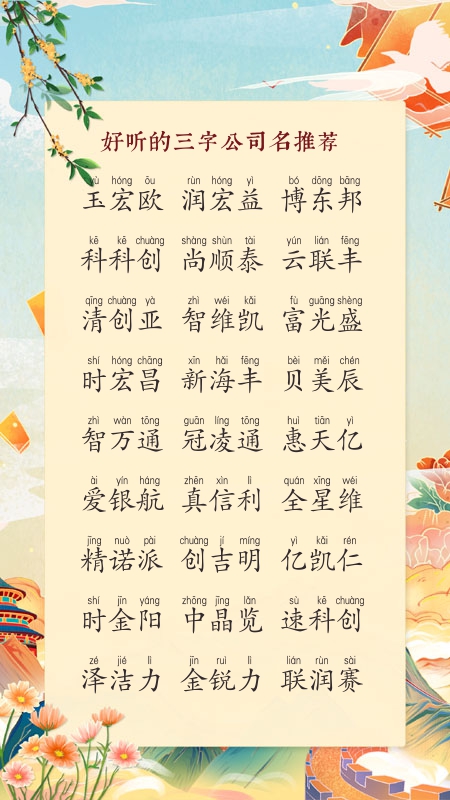 好听的三字公司名推荐
yù hóng ōu rùn hóng yì bó dōng bāng
玉宏欧 润宏益 博东邦
kē kē chuàng shàng shùn tài yún lián fēng
科科创 尚顺泰 云联丰
qīng chuàng yà zhì wéi kǎi fù guāng shèng
清创亚 智维凯 富光盛
shí hóng chāng xīn hǎi fēng bèi měi chén
时宏昌 新海丰 贝美辰
zhì wàn tōng guān líng tōng huì tiān yì
智万通 冠凌通 惠天亿
ài yín háng zhēn xìn lì quán xīng wéi
爱银航 真信利 全星维
jīng nuò pài chuàng jí míng yì kǎi rén
精诺派 创吉明 亿凯仁
shí jīn yáng zhōng jīng lǎn sù kē chuàng
时金阳 中晶览 速科创
zé jié lì jīn ruì lì lián rùn sài
泽洁力 金锐力 联润赛